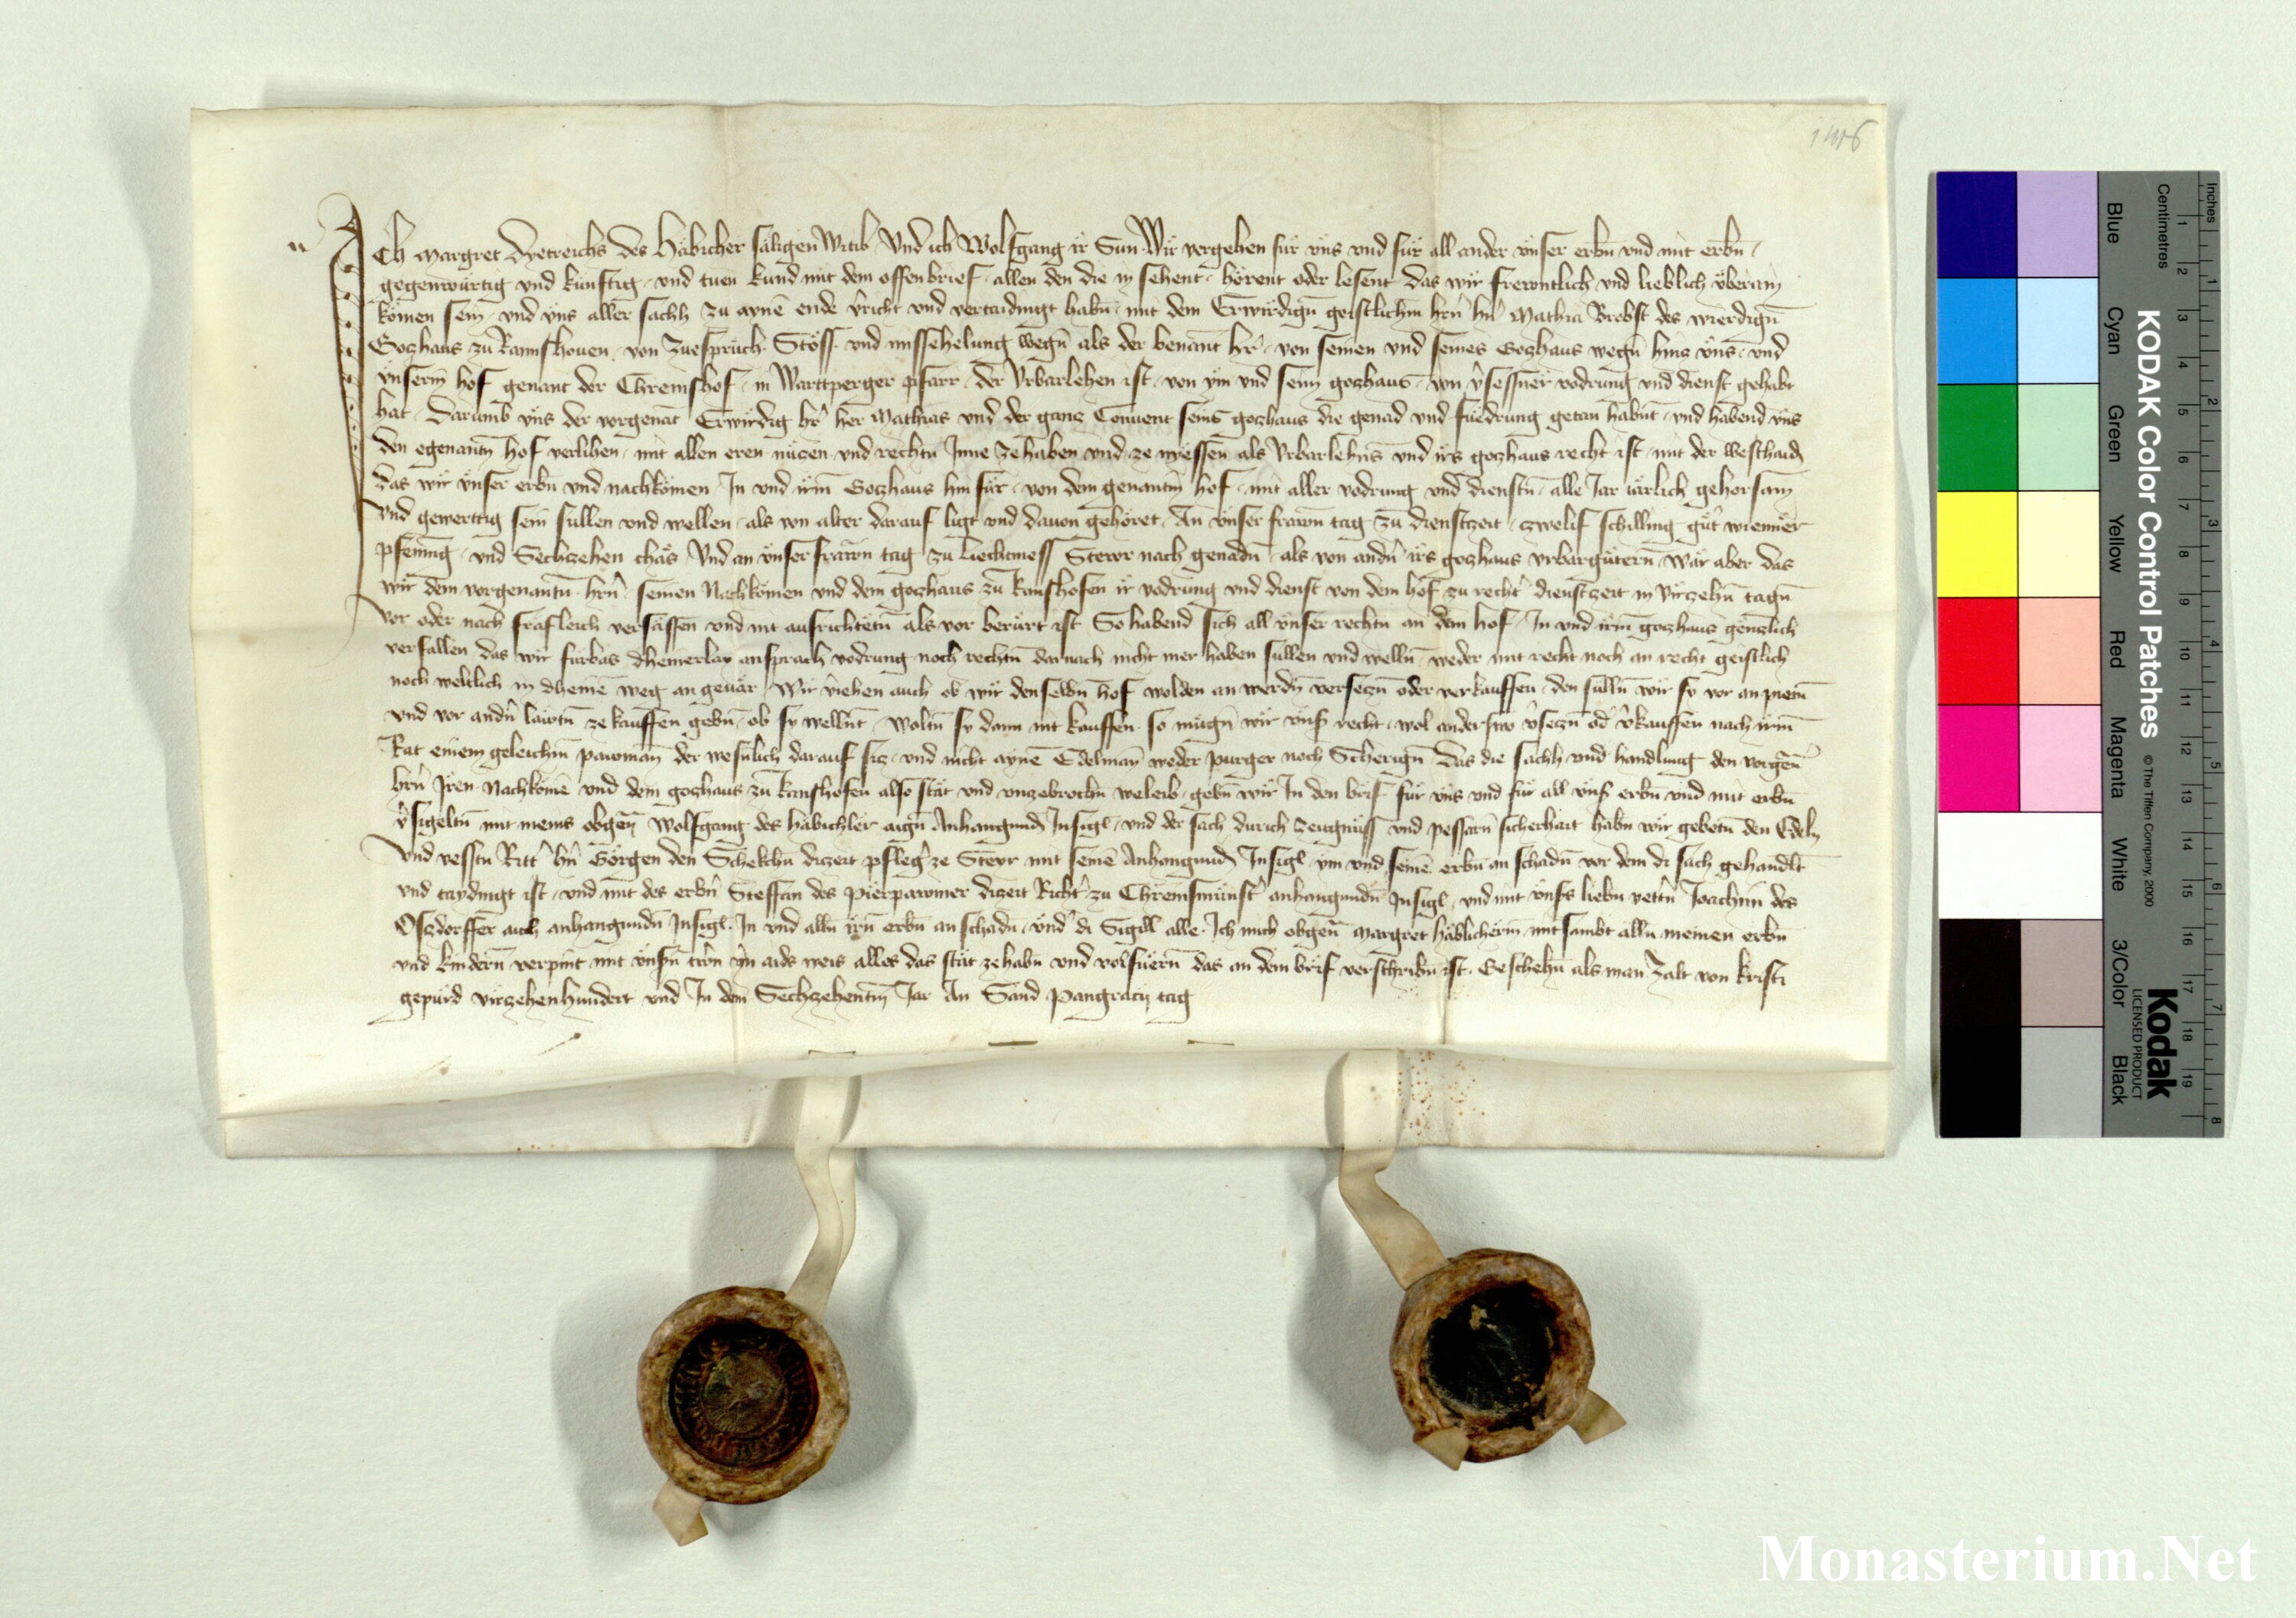 1416
Ich Margret Dyetreichs des Häbicher säligen Witib Und ich Wolfgang ir Sun Wir vergehen für vns vnd für all ander vnser erbn vnd mit erbn
gegenwürtig vnd künftig vnd tuen kund mit dem offen brief allen den die in sehent hörent oder lesent das wir frewntlich vnd lieblich vberain
komen sein vnd vns aller sachh zu aynē ende v̂richt vnd vertaidingt habn mit dem Erwirdign geistlichm hrn̂ hn̂ Mathia Brobst des wierdign
Gozhaus zu Rannshouen von Zuesprüch Stöss vnd missehelung wegn als der benant hr̂ von seinen vnd seines Gozhaus wegn hinz vns vnd
vnserm hof genant der Chremshof in Warttperger pfarr der Vrbarlehen ist von ym vnd seim gozhaus von v̂sessner vodrung vnd dienst gehabt
hat Darumb vns der vorgenāt Erwirdig hr̂ her Mathias vnd der ganz Conuent seins gozhaus die genad vnd fuedrung getan habnt vnd habend vns
den egenantn hof verlihen mit allen eren nüzen vnd rechtn Inne ze haben vnd ze niessen als Vrbarlehns vnd irs gozhaus recht ist mit der beschaid
das wir vnser erbn vnd nachkomen In vnd irm Gozhaus hin für von dem genantn hof mit aller vodrung vnd dienstn alle Jar iärlich gehorsam
vnd gewerttig sein sullen vnd wellen als von alter darauf ligt vnd dauon gehöret An vnser frawn tag zu dienstzeit zwelif schilling gut wienner
pfening vnd Sechzehen chäs Und an vnser frawn tag zu Liechtmess Stewr nach genadn als von andn̂ irs gozhaus vrbargütern Wär aber das
wir dem vorgenantn hrn̂ seinen Nachkomen vnd dem gozhaus zu Ranshofen ir vodrung vnd dienst von dem hof zu recht̂ dienstzeit in virzehn tagn
vor oder nach fräfleich versässen vnd nit ausrichtetn als vor berürt ist So habend sich all vnser rechtn an dem hof In vnd irm gozhaus genzlich
verfallen das wir fürbas dhainerlay ansprach vodrung noch rechtn darnach nicht mer haben sullen vnd welln weder mit recht noch an recht geistlich
noch weltlich in dhainē weg an geuär Wir v̂iehen auch ob wir denselbn hof wolden an werdn versezn oder verkauffen den sülln wir sy vor an pietn
vnd vor andn̂ läwtn ze kauffen gebn ob sy wellnt Woltn sy dann nit kauffen so mügn wir vnsr̂ recht wol anderswo v̂sezn od̂ v̂kauffen nach irm
Rat einem geleichm pawman der wesnlich darauf siz vnd nicht aynē Edelman weder purger noch Scherign Das die sachh vnd handlung den vorgen̄
hrn̂ Iren Nachkomē vnd dem gozhaus zu Ranshofen also stät vnd vnzebrochn beleib gebn wir In den brif für vns vnd für all vnsr̂ erbn vnd mit erbn
v̂sigeltn mit meins obgen̄ Wolfgang des häbichler aign Anhangund Insigl vnd der sach durich zeugnüss vnd pessern̂ sicherhait habn wir gebetn den Edeln
vnd vesstn Ritt̂ hn̂ Görgen den Schekchn diczeit pfleĝ ze Steyr mit seinē Anhangund Insigl ym vnd seinē erbn an schadn vor dem di sach gehandlt
vnd taydingt ist vnd mit des erbn̂ Steffan des Pierpawmer diczeit Richt̂ zu Chremsmünst̂ anhangundn Insigl vnd mit vnsrs liebn vettn̂ Joachim des
Oszdorffer auch anhangundn Insigl In vnd alln irn erbn an schadn vnd̂ di Sigill alle Ich mich obgen̄ Margret häblicherin mit sambt alln meinen erbn
vnd kindern verpint mit vnsn̂ trŵn in aids weis alles das stät ze habn vnd volfüern das an dem brif verschribn ist Geschehn als man zalt von kristi
gepurd virzehenhundert vnd In dem Sechzehentm Jar An Sand Pangracy tag
KODAK Color Control Patches © The Tiffen Company, 2000
Kodak
LICENSED PRODUCT
Inches
Centimetres
Blue Cyan Green Yellow Red Magenta White 3/Color Black
Monasterium.Net